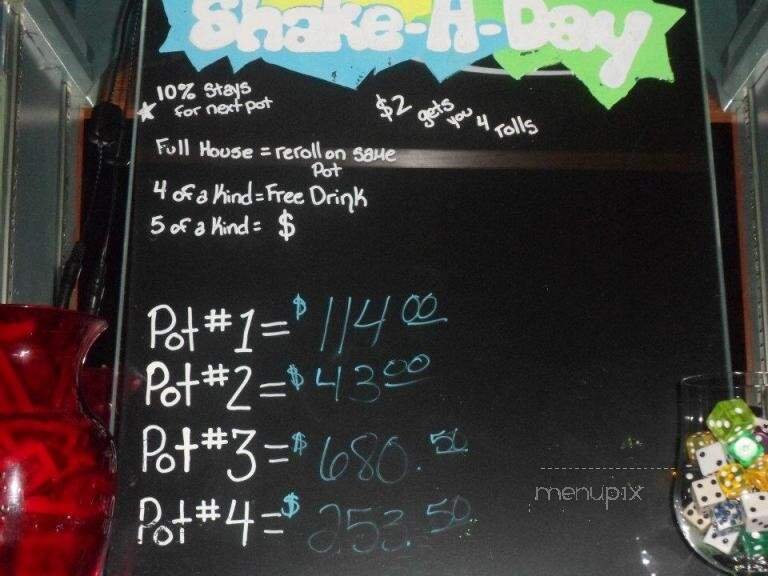 Shake-A-Day
10% Stays
for next pot
$2 gets you 4 rolls
Full House = reroll on same
Pot
4 of a Kind = Free Drink
5 of a Kind = $
Pot #1 = $114.00
Pot #2 = $43.00
Pot #3 = $680.50
Pot #4 = $253.50
menupix